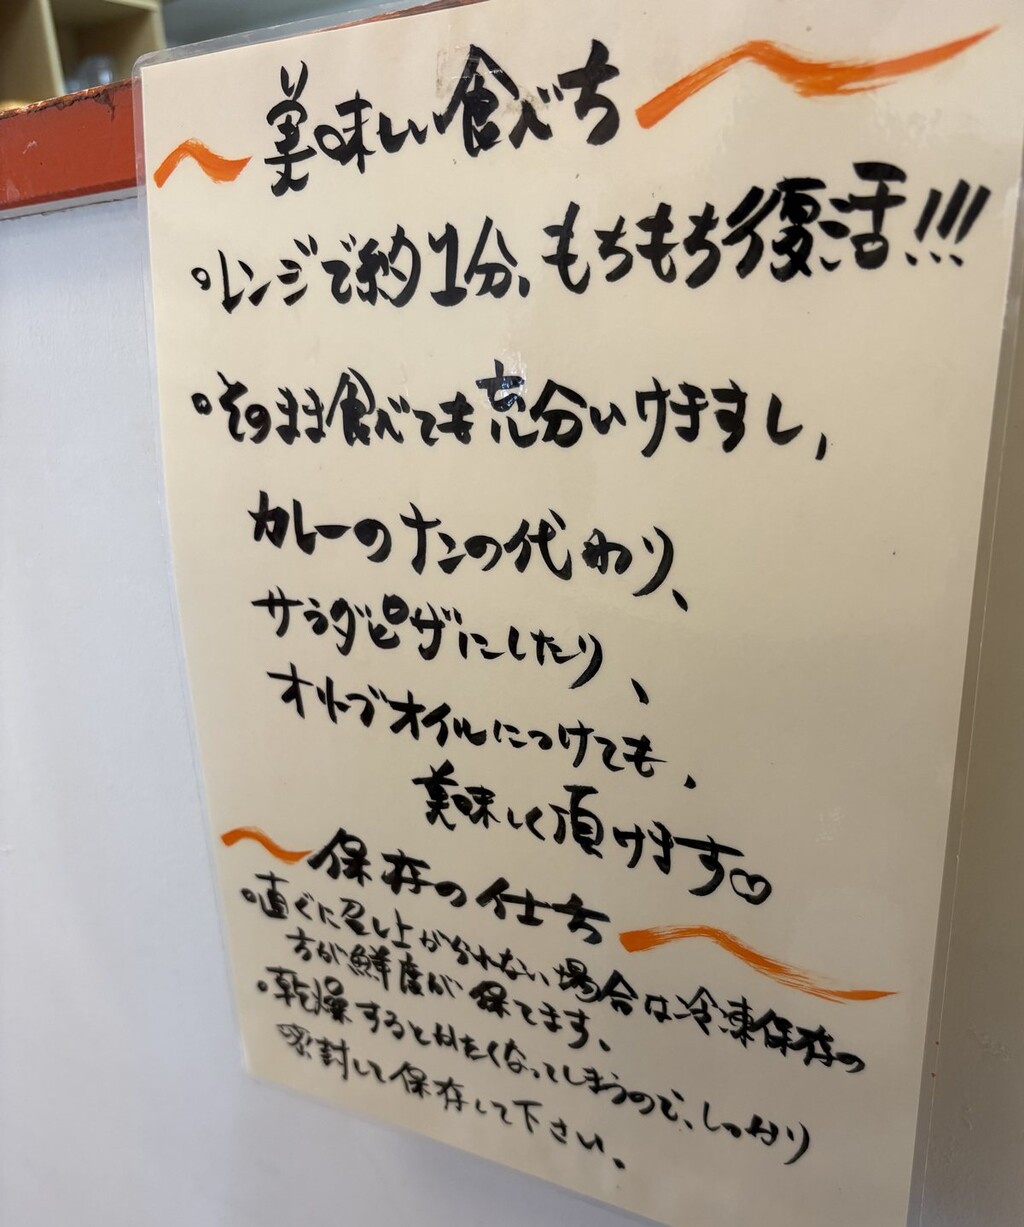 美味しい食べち
・レンジで約1分、もちもち復活!!!
・そのまま食べても充分いけますし、
カレーのナンの代わり、
サラダピザにしたり、
オリーブオイルにつけても、
美味しく頂けます♡
保存の仕方
・直ぐに召し上がられない場合は冷凍保存の
方が鮮度が保てます、
・乾燥するとかたくなってしまうので、しっかり
密封して保存して下さい。